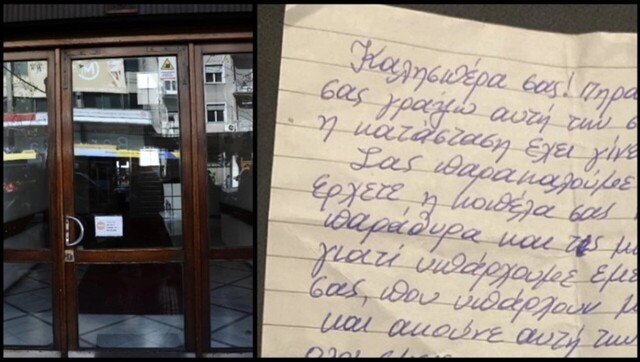 Καλησπέρα σας! Πηρα
σας γράψω αυτή την σ
η κατάσταση έχει γίνε
Σας παρακαλούμε
έρχετε η κοπέλα σας
παράθυρα και τις μ
γιατί υπάρχουμε εμε
σας, που υπάρχουν μ
και ακούνε αυτή τη